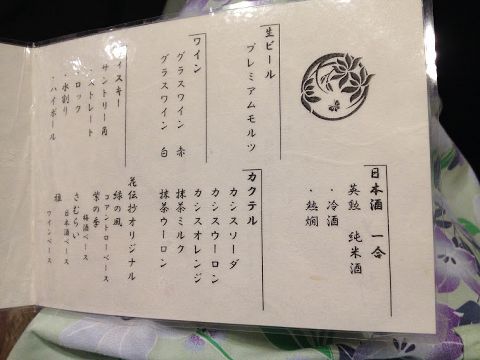 生ビール
プレミアムモルツ
ワイン
グラスワイン 赤
グラスワイン 白
イスキー
サントリー角
ストレート
ロック
・水割り
・ハイボール
日本酒 一合
英勲 純米酒
・冷酒
・熱燗
カクテル
カシスソーダ
カシスウーロン
カシスオレンジ
抹茶ミルク
抹茶ウーロン
花伝抄オリジナル
緑の風
コアントローベース
紫の季
梅酒ベース
さむらい
日本酒ベース
雅
ワインベース